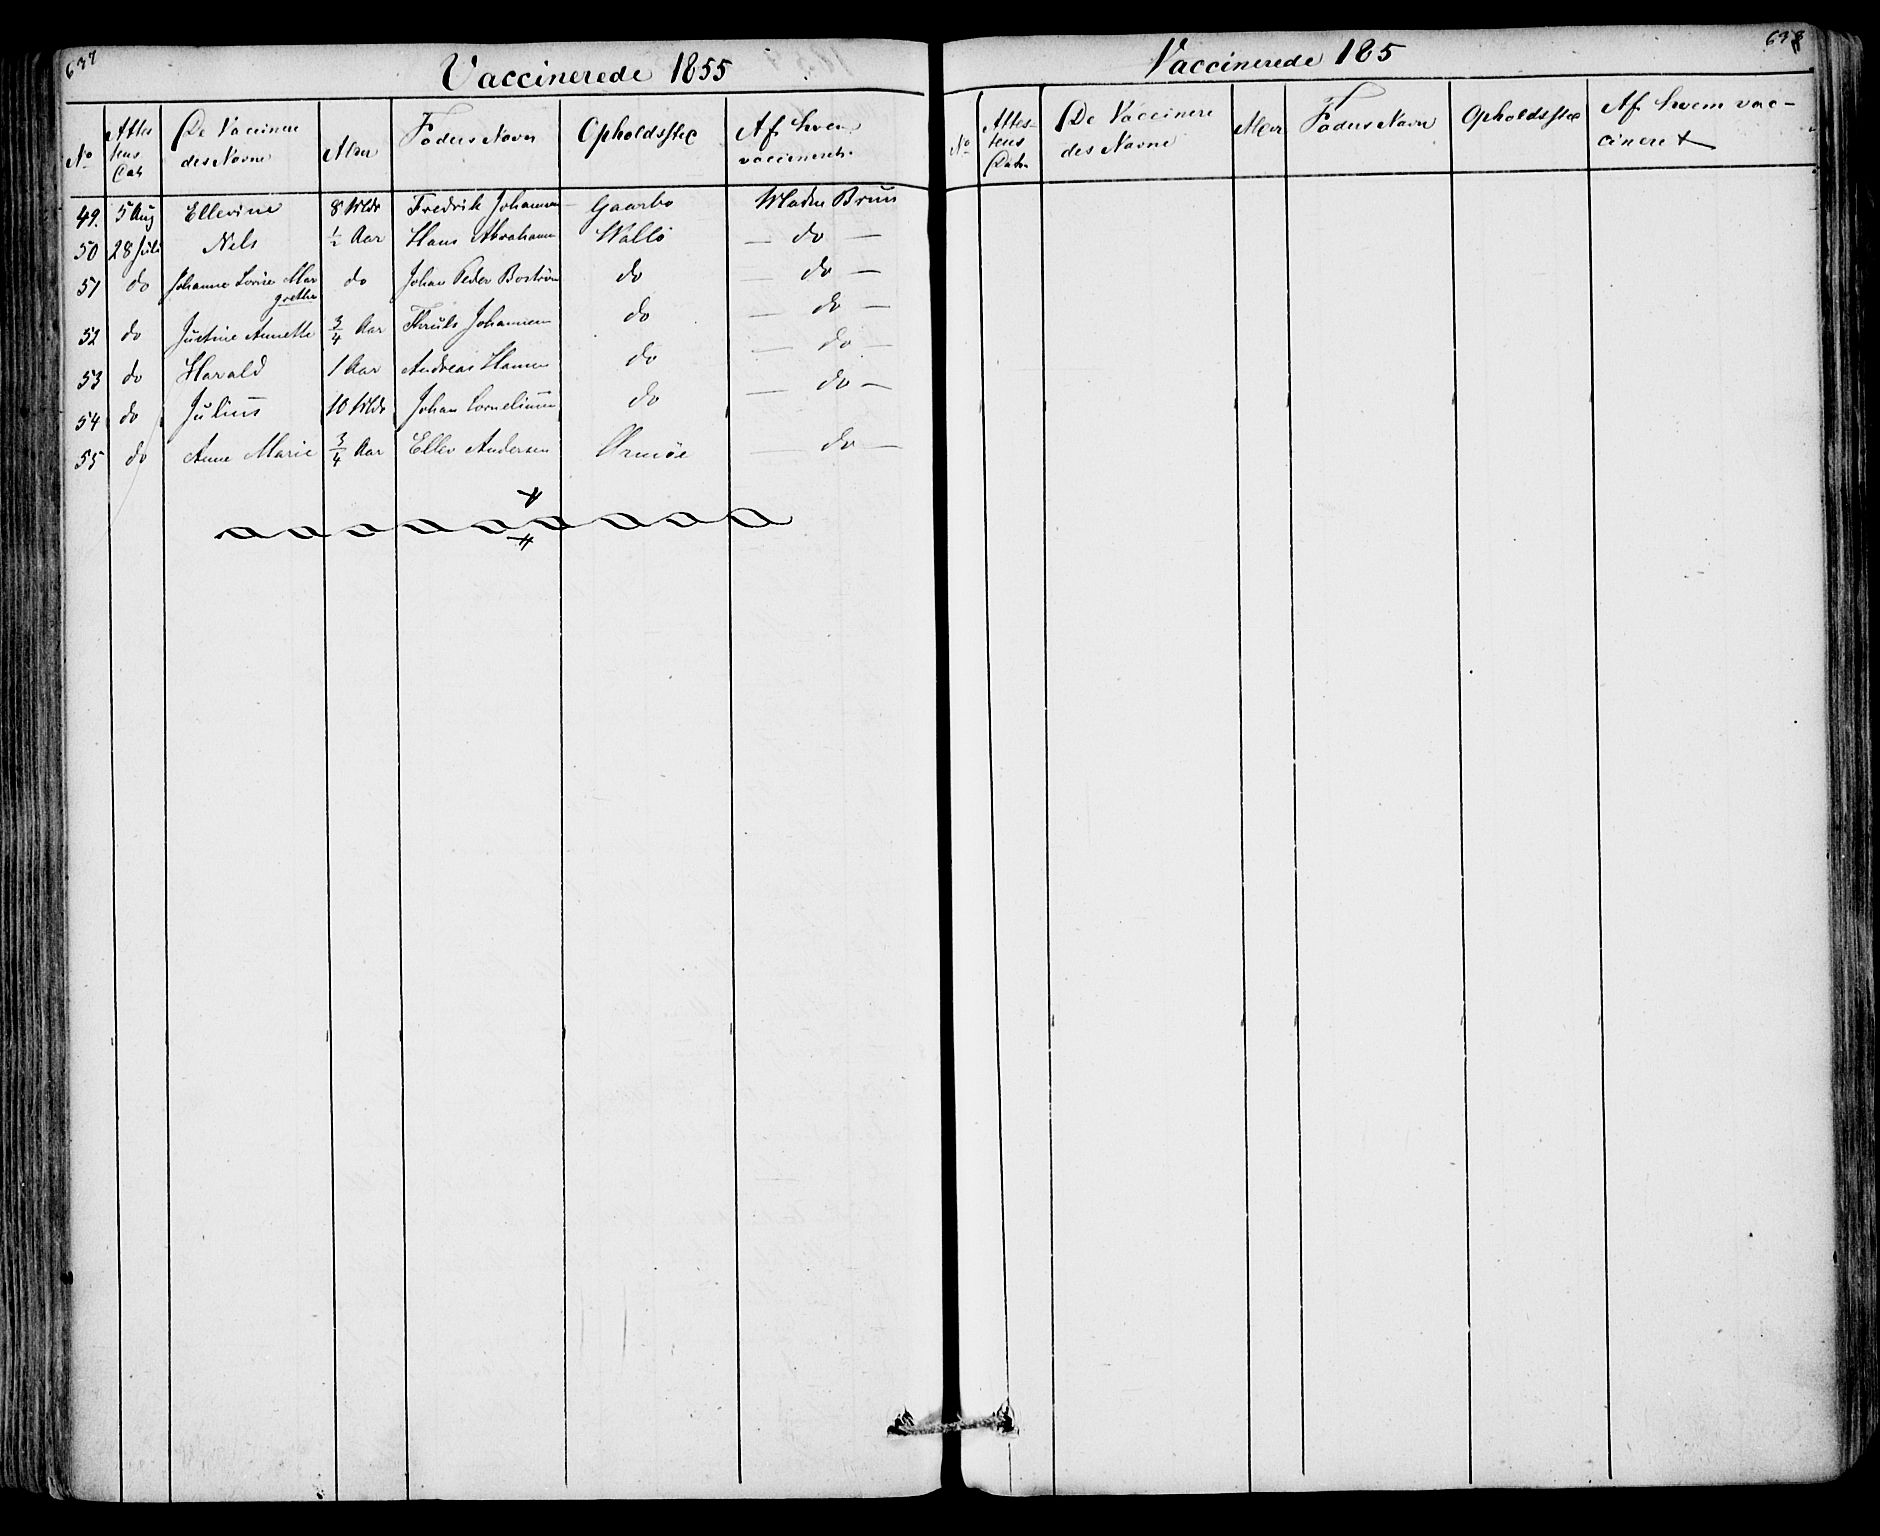 637
Vaccinerede 1855
No | Attestens Dat | De Vaccineredes Navne | Alder | Faders Navn | Opholdssted | Af hvem vaccineret
49. | 5 Aug | Ellevine | 8 | Fredrik Johannsen | Gaarbo | Madm Bruun
50 | 28 Juli | Nels | ½ Aar | Hans Abrahams | Walló | — do —
51 | do | Johanne Lovise Margrethe | do | Johan Peder Boström | do | — do —
52 | do | Justine Annette | 3/4 Aar | Thruls Johannesen | do | — do —
53 | do | Harald | 1 Aar | Andreas Hansen | do | — do —
54 | do | Julius | 10 | Johan Corneliussen | do | — do —
55 | do | Anne Marie | 3/4 Aar | Ellev Andersen | Ormöe | — do —
638
Vaccinerede 185
No | Attestens Dato | De Vaccineredes Navne | Alder | Faders Navn | Opholdssted | Af hvem vaccineret